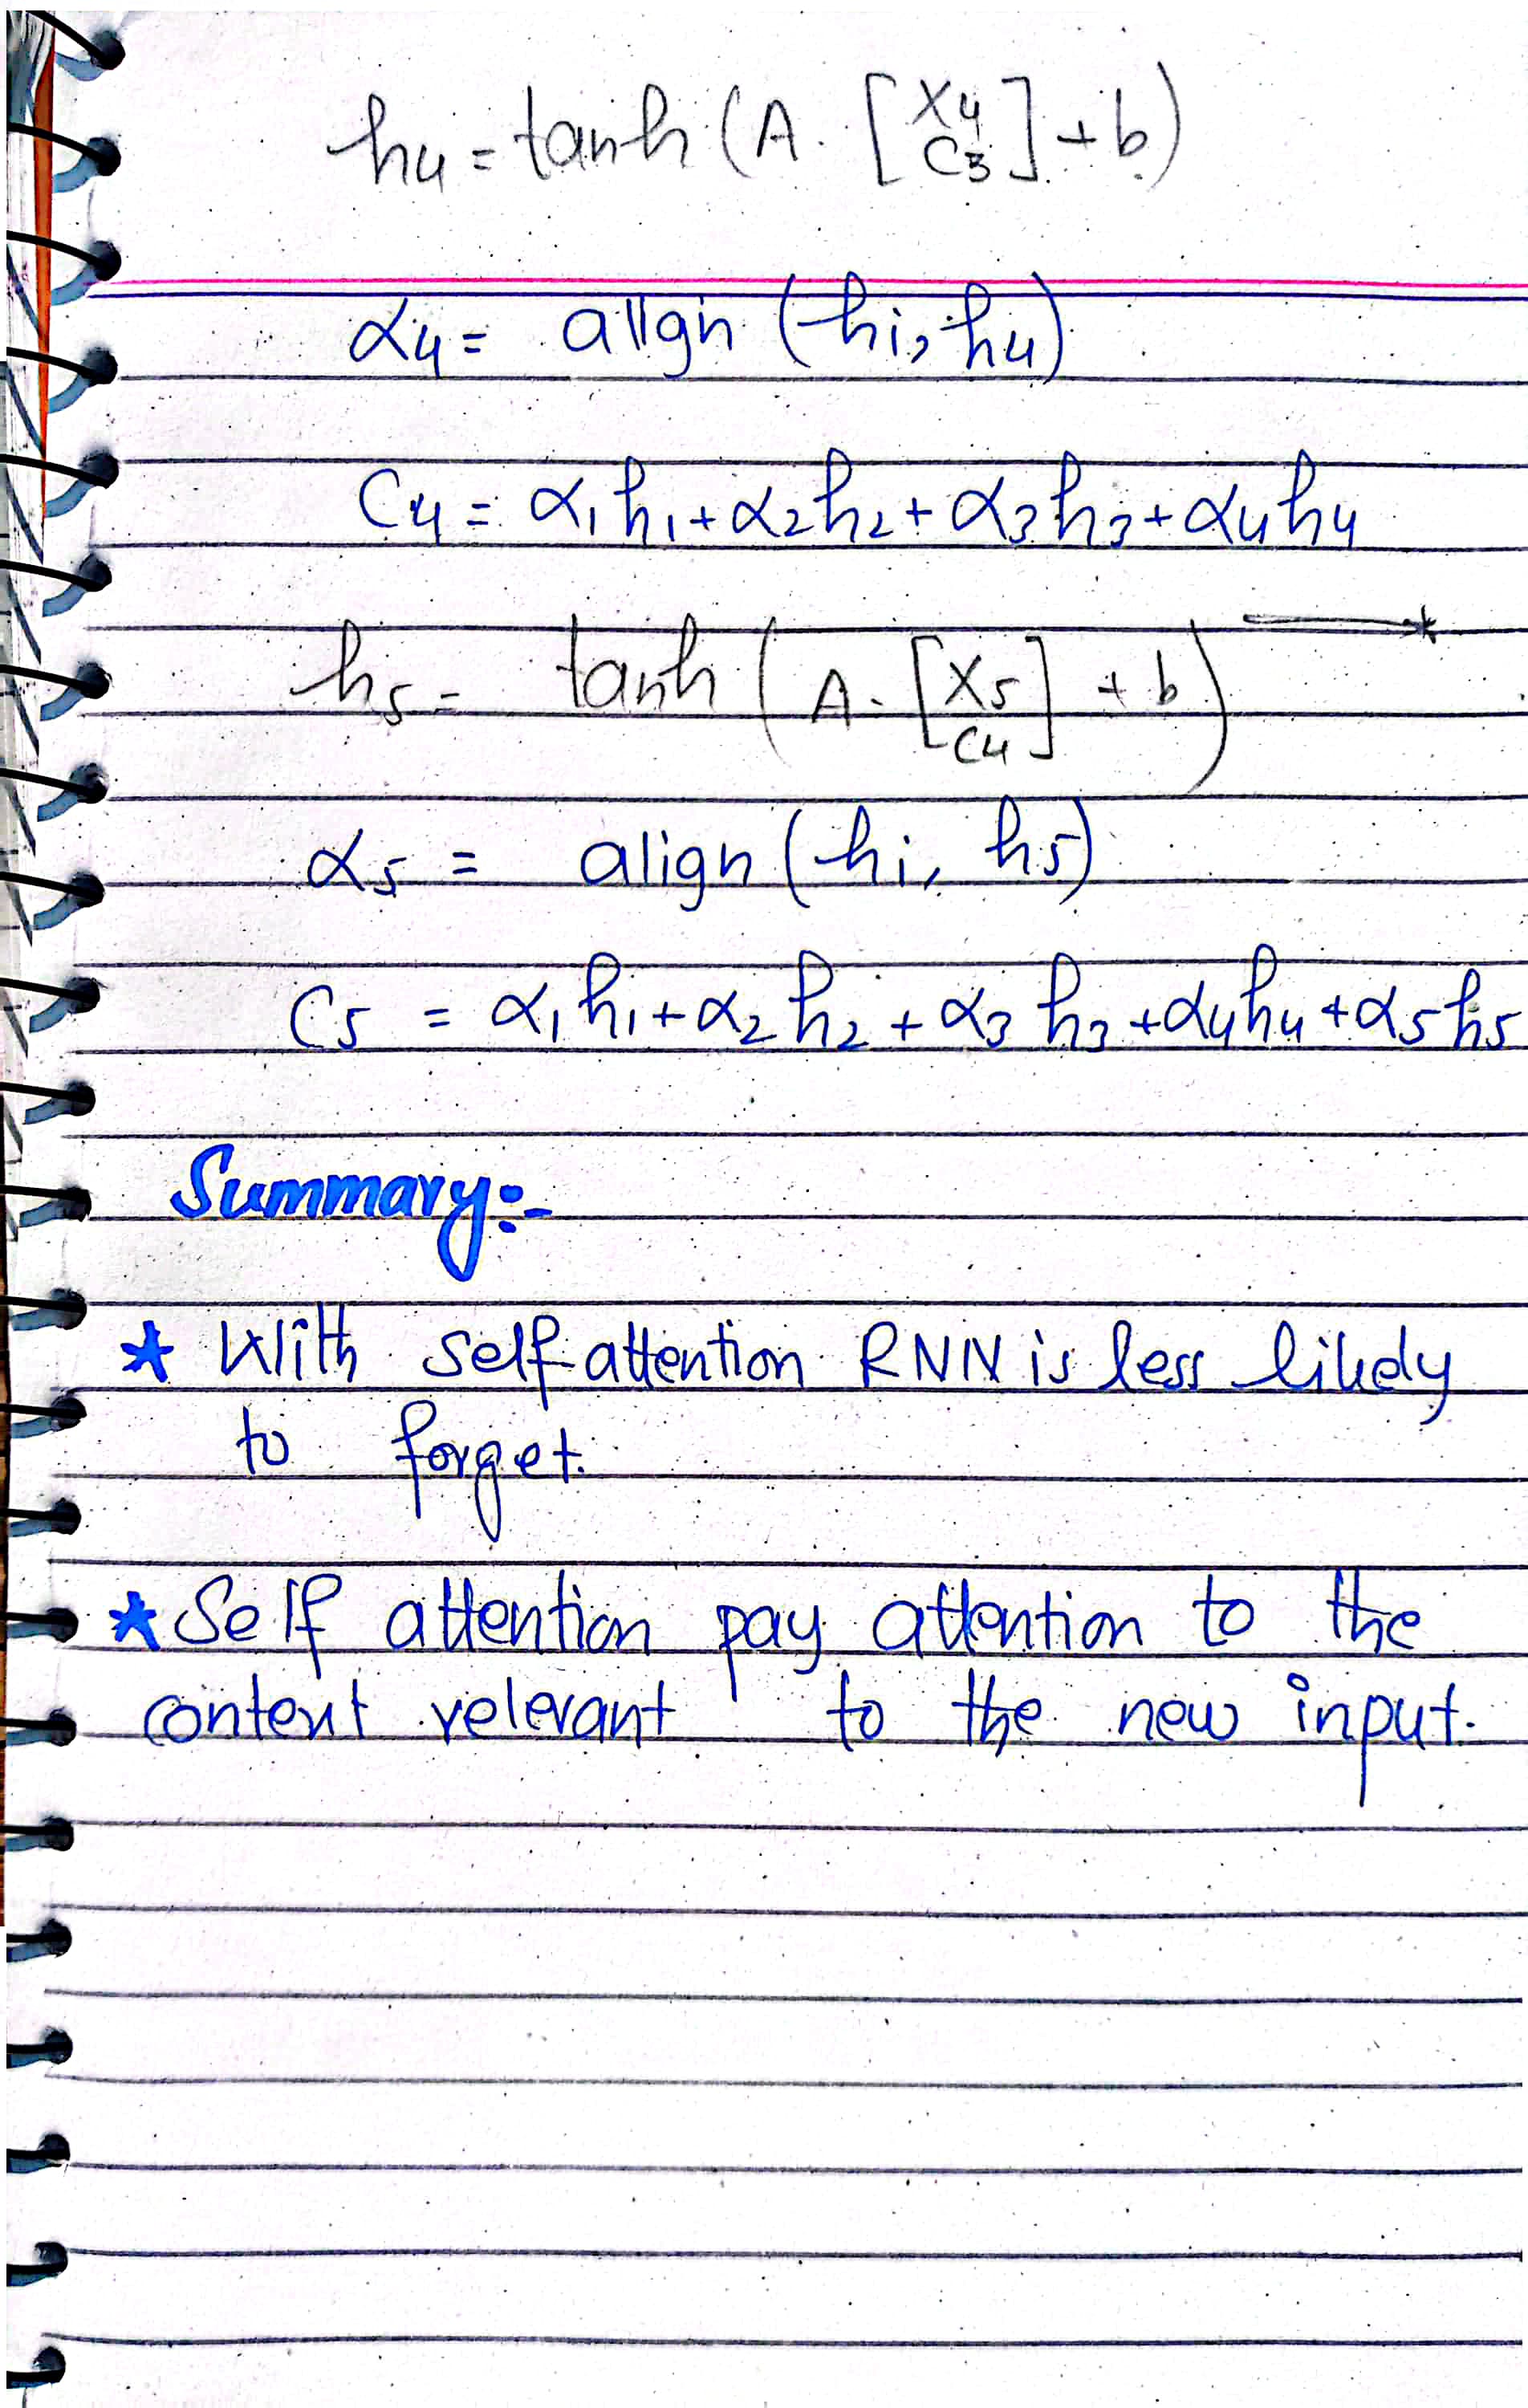 h₄ = tanh (A · [X₄ C₃] + b)
α₄ = align (hi, h₄)
C₄ = α₁h₁ + α₂h₂ + α₃h₃ + α₄h₄
h₅ = tanh (A · [X₅ C₄] + b) *
α₅ = align (hi, h₅)
C₅ = α₁h₁ + α₂h₂ + α₃h₃ + α₄h₄ + α₅h₅
Summary:-
* With self attention RNN is less likely
to forget.
* Self attention pay attention to the
context relevant to the new input.